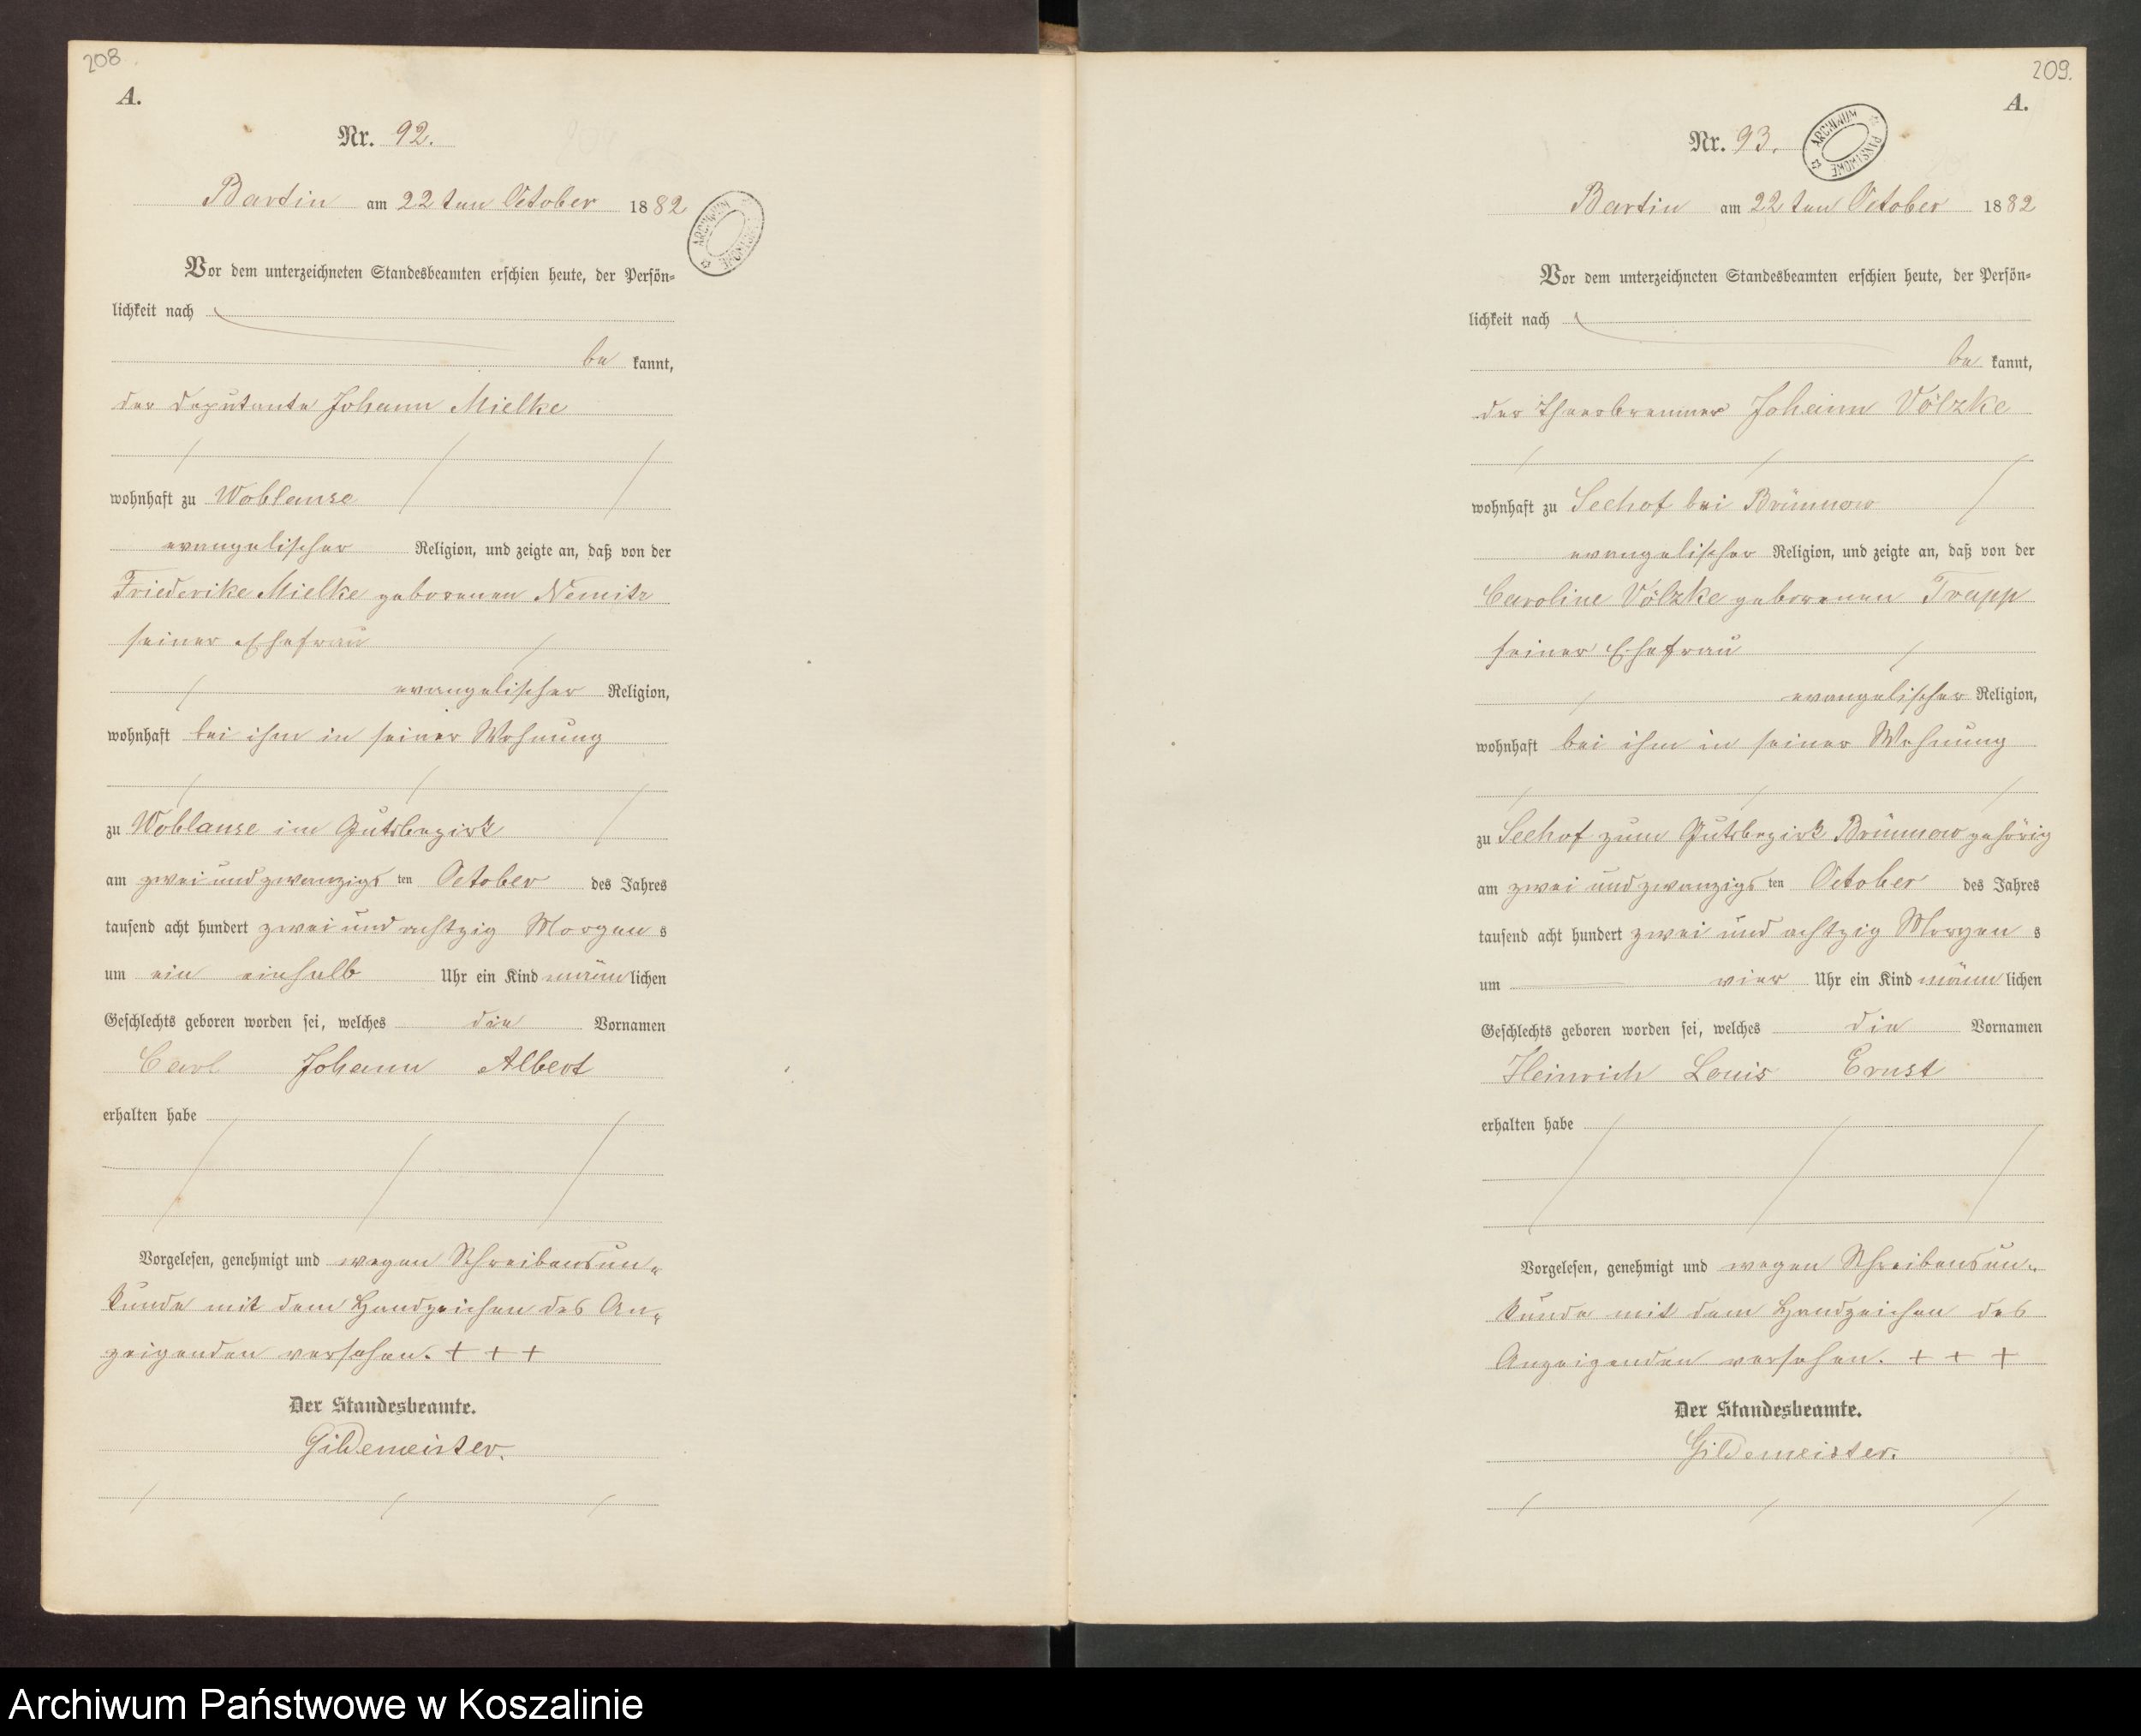 208
A.
Nr. 92.
Bartin am 22ten October 1882
ARCHIWUM PAŃSTWOWE
Vor dem unterzeichneten Standesbeamten erschien heute, der Persön-
lichkeit nach
be kannt,
der Deputante Johann Mielke
wohnhaft zu Woblanse
evangelischer Religion, und zeigte an, daß von der
Friederike Mielke geborenen Nemitz
seiner Ehefrau
evangelischer Religion,
wohnhaft bei ihm in seiner Wohnung
zu Woblanse im Gutsbezirk
am zwei und zwanzigs ten October des Jahres
tausend acht hundert zwei und achtzig Morgen s
um ein einhalb Uhr ein Kind männ lichen
Geschlechts geboren worden sei, welches die Vornamen
Carl Johann Albert
erhalten habe
Vorgelesen, genehmigt und wegen Schreibensun-
kunde mit dem Handzeichen des An-
zeigenden versehen. + + +
Der Standesbeamte.
Gildemeister.
209.
A.
Nr. 93.
ARCHIWUM PAŃSTWOWE
Bartin am 22ten October 1882
Vor dem unterzeichneten Standesbeamten erschien heute, der Persön-
lichkeit nach
be kannt,
der Theerbrenner Johann Völzke
wohnhaft zu Seehof bei Brünnow
evangelischer Religion, und zeigte an, daß von der
Caroline Völzke geborenen Trapp
seiner Ehefrau
evangelischer Religion,
wohnhaft bei ihm in seiner Wohnung
zu Seehof zum Gutsbezirk Brünnow gehörig
am zwei und zwanzigs ten October des Jahres
tausend acht hundert zwei und achtzig Morgen s
um vier Uhr ein Kind männ lichen
Geschlechts geboren worden sei, welches die Vornamen
Heinrich Louis Ernst
erhalten habe
Vorgelesen, genehmigt und wegen Schreibensun-
kunde mit dem Handzeichen des
Anzeigenden versehen. + + +
Der Standesbeamte.
Gildemeister.
Archiwum Państwowe w Koszalinie